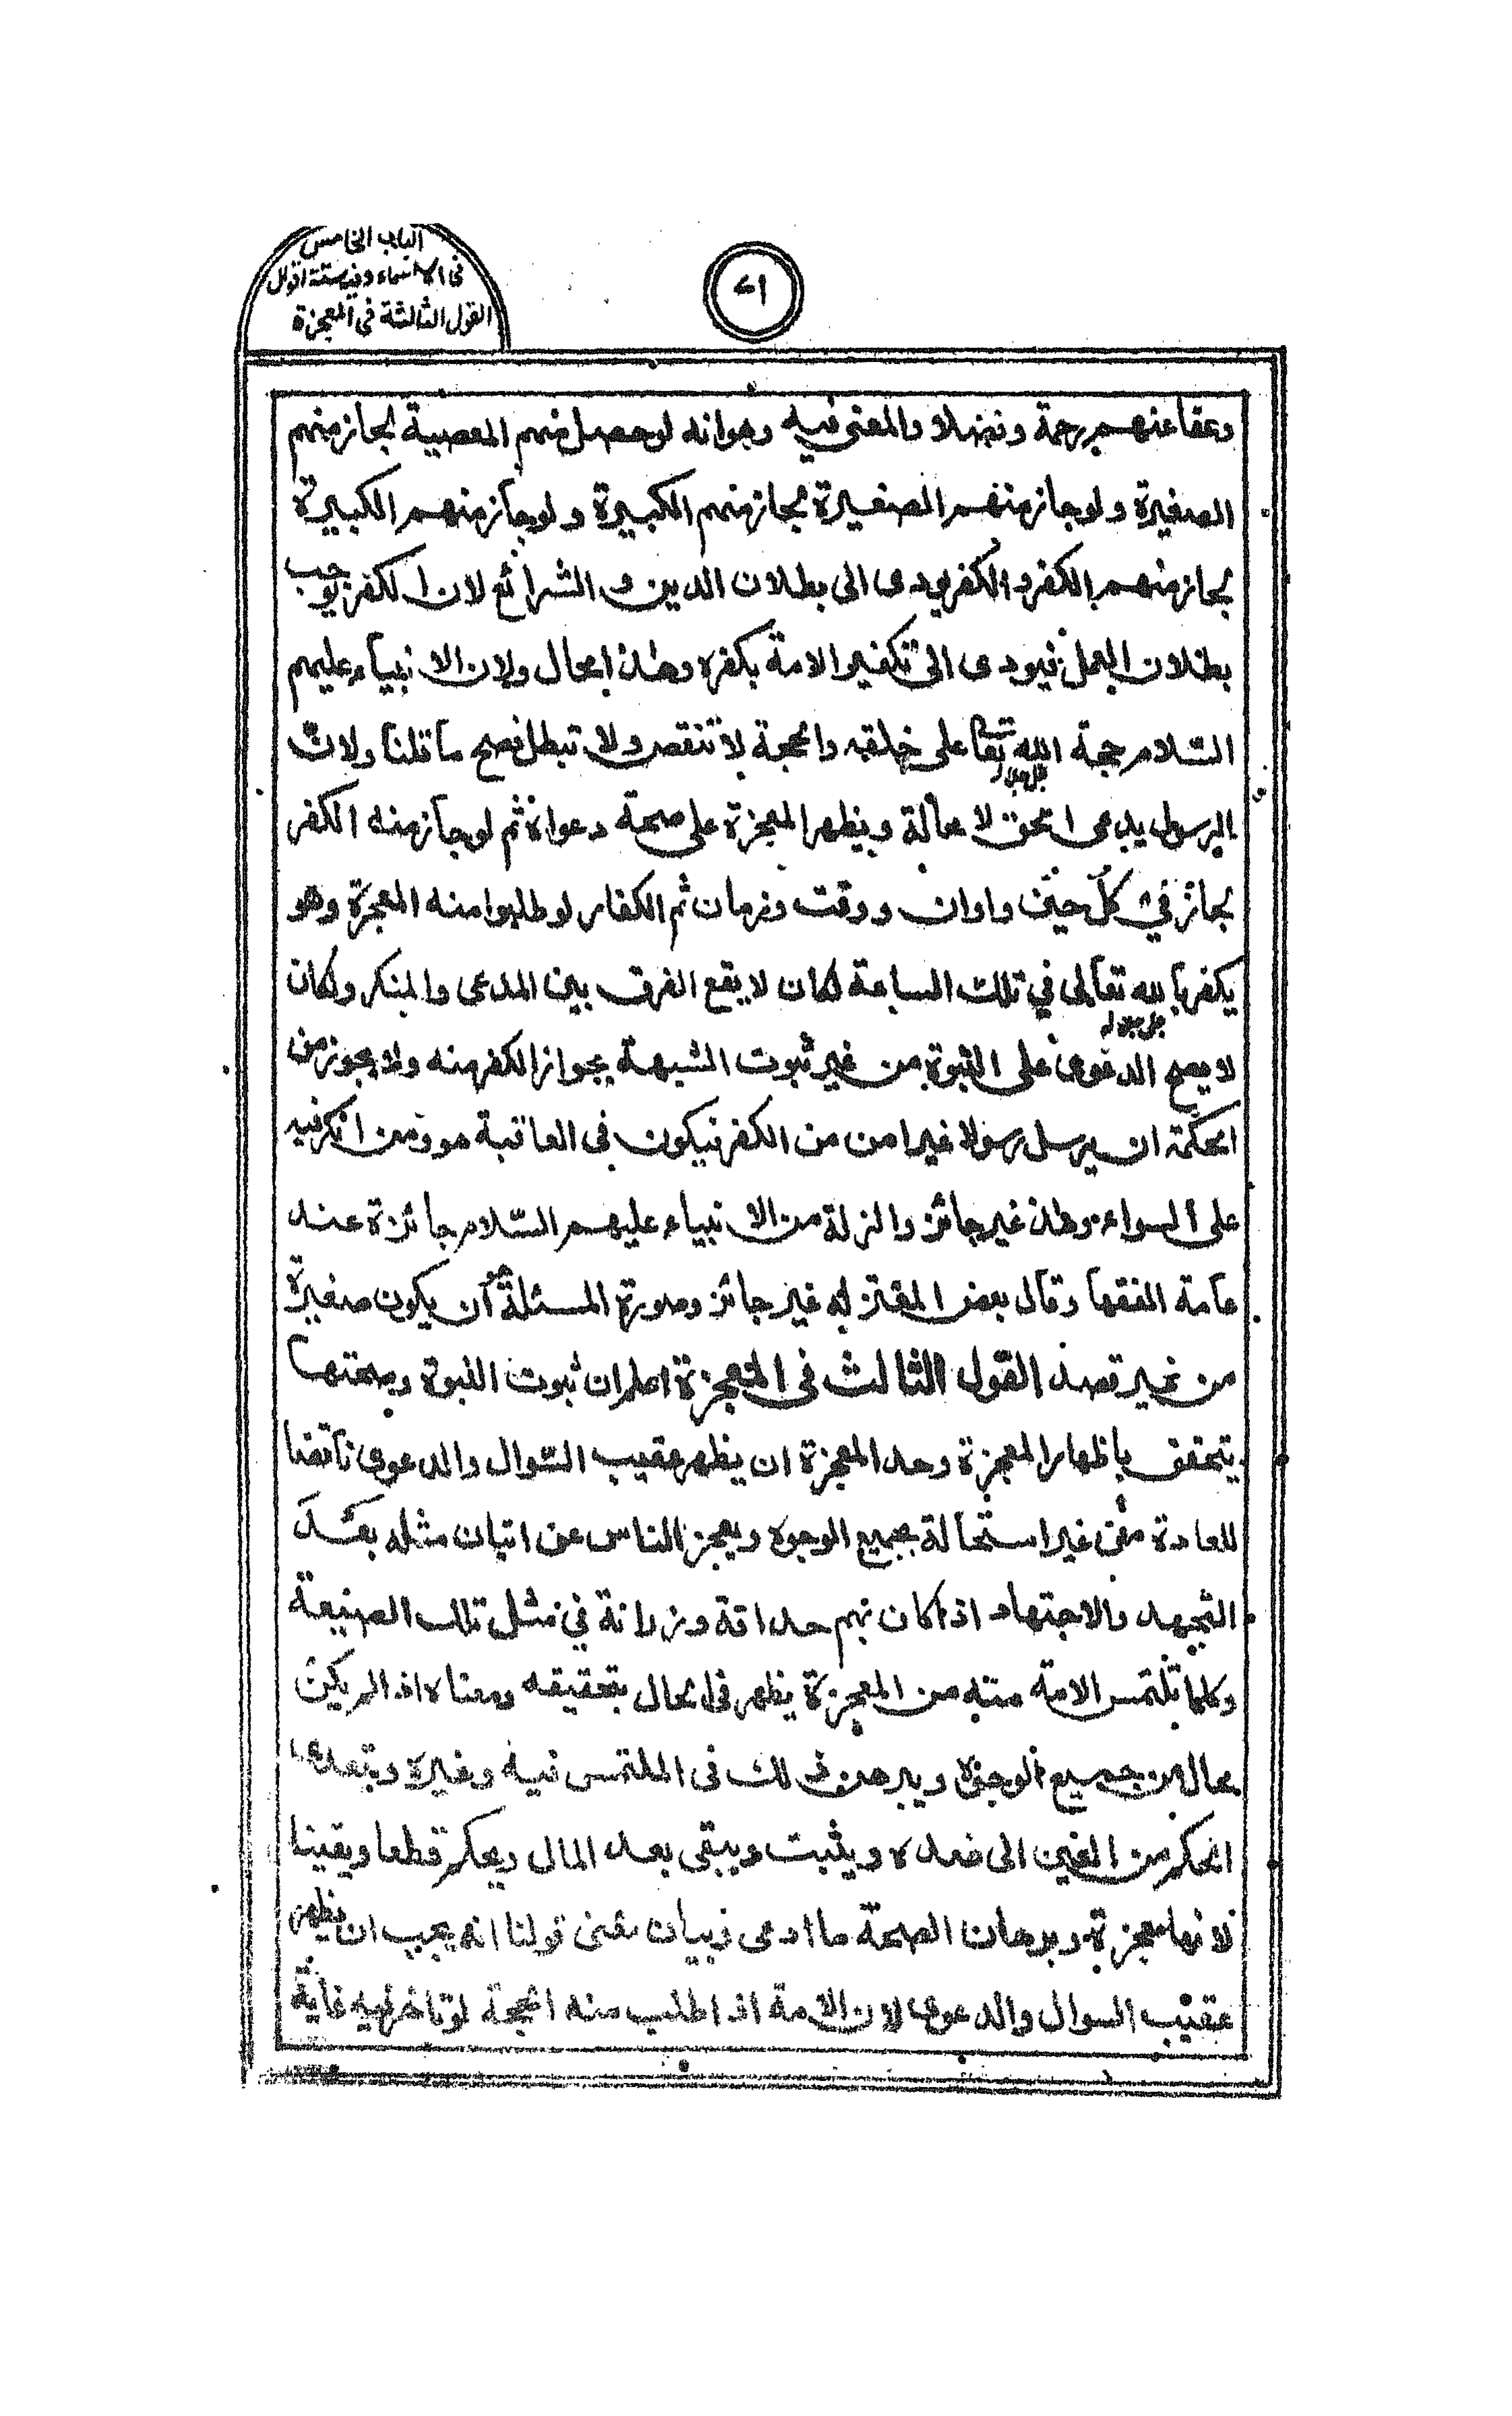 الباب الخامس
فى الاسماء وفيه ستة اقوال
القول الثالثة فى المعجزة
٧١
وعفا عنهم رحمة وتفضلا والمعنى فيه وهو انه لو حصل منهم المعصية لجاز منهم
الصغيرة ولو جاز منهم الصغيرة لجاز منهم الكبيرة ولو جاز منهم الكبيرة
لجاز منهم الكفر والكفر يودى الى بطلان الدين و الشرائع لان الكفر يوجب
بطلان العمل فيودى الى تكفير الامة بكفره وهذا محال ولان الانبياء عليهم
السلام حجة الله تعالى جل جلاله على خلقه والحجة لا تنقص ولا تبطل فصح ما قلنا ولان
الرسول يدعى الحق لا محالة ويظهر المعجزة على صحة دعواه ثم لو جاز منه الكفر
لجاز في كل حين واوان ووقت وزمان ثم الكفار لو طلبوا منه المعجزة وهو
يكفر بالله تعالى جل جلاله في تلك الساعة لكان لا يقع الفرق بين المدعى والمنكر ولكان
لا يصح الدعوى على النبوة من غير ثبوت الشبهة بجواز الكفر منه ولا يجوز من
الحكمة ان يرسل رسولا غير امن من الكفر فيكون فى العاقبة هو ومن انكر فيه
على السواء وهذا غير جائز والزلة من الانبياء عليهم السلام جائزة عند
عامة الفقها وقال بعض المعتزله غير جائز وصورة المسئلة ان يكون صغيرة
من غير قصد القول الثالث فى المعجزة اعلم ان ثبوت النبوة وصحتها
يتحقق باظهار المعجزة وحد المعجزة ان يظهر عقيب السوال والدعوى ناقضا
للعادة من غير استحالة بجميع الوجوه ويعجز الناس عن اتيان مثله بعد
التجهد والاجتهاد اذا كان بهم حذاقة ورزانة في مثل تلك الصنيعة
وكلما تلتمس الامة منه من المعجزة يظهر فى الحال بتحقيقه ومعناه اذا لم يكن
محال من جميع الوجوه ويبرهن ذلك فى الملتمس فيه وغيره ويتعدى
الحكم من العين الى ضده ويثبت ويبقى بعد المال ويحكم قطعا ويقينا
لانها معجزة وبرهان الصحة ما ادعى وبيان معنى قولنا انه يجب ان يظهر
عقيب السوال والدعوى لان الامة اذا طلب منه الحجة لو تاخر فيه غاية